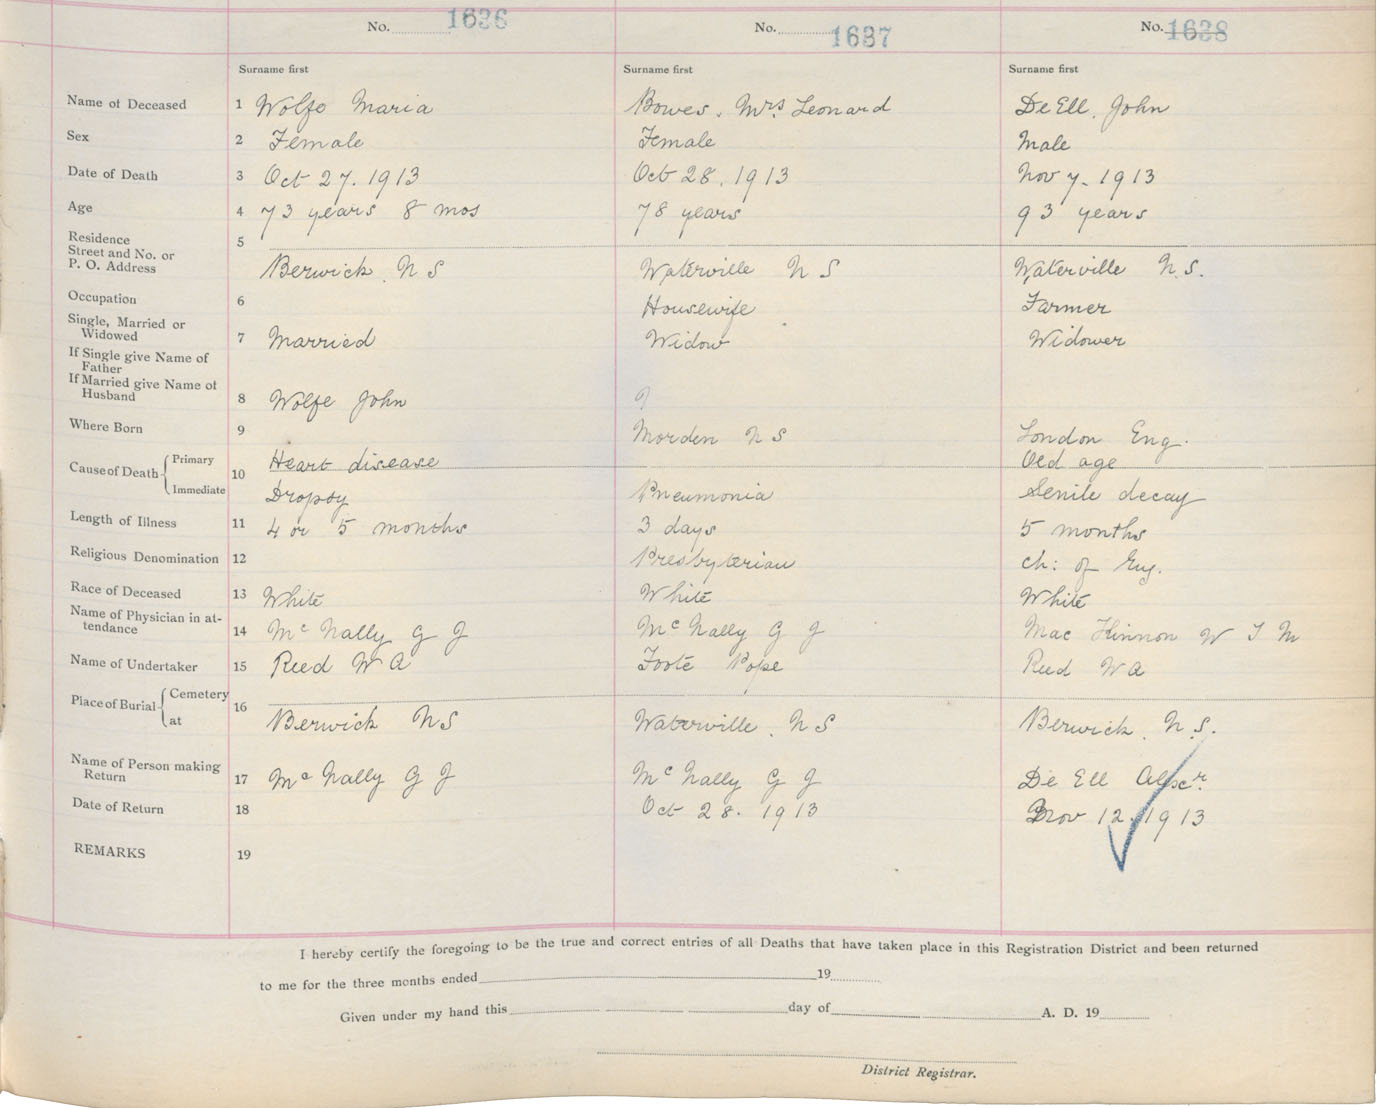 No. 1636 No. 1637 No. 1638
Surname first Surname first Surname first
Name of Deceased 1 Wolfe Maria Bowes, Mrs. Leonard DeEll, John
Sex 2 Female Female Male
Date of Death 3 Oct 27. 1913 Oct 28. 1913 Nov 7. 1913
Age 4 73 years 8 mos 78 years 93 years
Residence 5
Street and No. or
P. O. Address Berwick N S Waterville N S Waterville N.S.
Occupation 6 Housewife Farmer
Single, Married or
Widowed 7 Married Widow Widower
If Single give Name of
Father
If Married give Name of
Husband 8 Wolfe John
Where Born 9 Morden N S London Eng.
Cause of Death Primary 10 Heart disease Old age
Immediate Dropsy Pneumonia Senile decay
Length of Illness 11 4 or 5 months 3 days 5 months
Religious Denomination 12 Presbyterian ch: of Eng.
Race of Deceased 13 White White White
Name of Physician in at-
tendance 14 McNally G J McNally G J MacKinnon W T M
Name of Undertaker 15 Reed W A Foote Pope Reed W A
Place of Burial Cemetery 16
at Berwick N S Waterville. N S Berwick. N.S.
Name of Person making
Return 17 McNally G J McNally G J De Ell
Date of Return 18 Oct 28. 1913 Nov 12. 1913
REMARKS 19
I hereby certify the foregoing to be the true and correct entries of all Deaths that have taken place in this Registration District and been returned
to me for the three months ended 19
Given under my hand this day of A. D. 19
District Registrar.